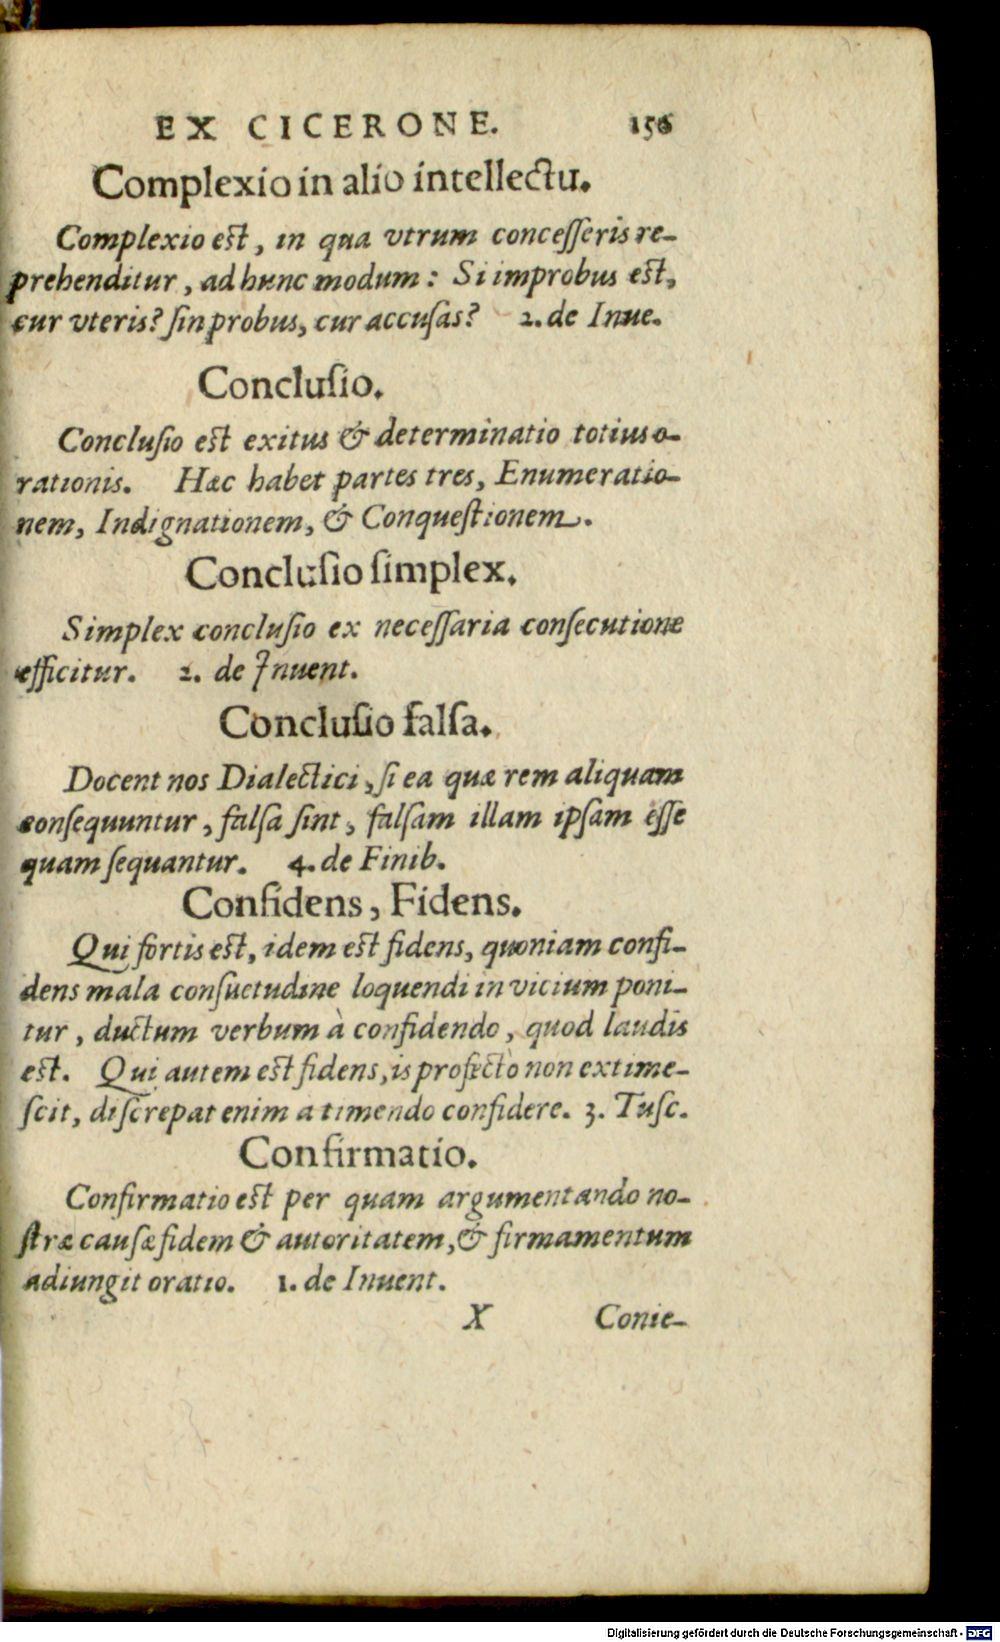 EX CICERONE. 156
Complexio in alio intellectu.
Complexio est, in qua vtrum concesseris re-
prehenditur, ad hunc modum: Si improbus est,
cur vteris? sin probus, cur accusas? 2. de Inue.
Conclusio.
Conclusio est exitus & determinatio totius o-
rationis. Hæc habet partes tres, Enumeratio-
nem, Indignationem, & Conquestionem.
Conclusio simplex.
Simplex conclusio ex necessaria consecutione
efficitur. 2. de Inuent.
Conclusio falsa.
Docent nos Dialectici, si ea quæ rem aliquam
consequuntur, falsa sint, falsam illam ipsam esse
quam sequantur. 4. de Finib.
Confidens, Fidens.
Qui fortis est, idem est fidens, quoniam confi-
dens mala consuetudine loquendi in vicium poni-
tur, ductum verbum à confidendo, quod laudis
est. Qui autem est fidens, is profectò non extime-
scit, discrepat enim a timendo confidere. 3. Tusc.
Confirmatio.
Confirmatio est per quam argumentando no-
stræ causæ fidem & autoritatem, & firmamentum
adiungit oratio. 1. de Inuent.
X Conie-
Digitalisierung gefördert durch die Deutsche Forschungsgemeinschaft - DFG